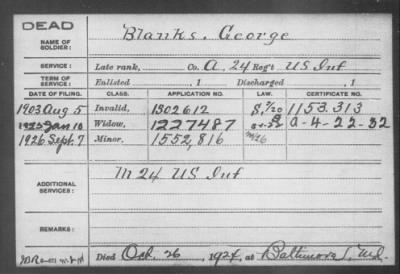 DEAD
NAME OF SOLDIER: Blanks, George
SERVICE: Late rank, Co. A, 24 Reg't US Inf
TERM OF SERVICE: Enlisted , 1 Discharged , 1
DATE OF FILING. CLASS. APPLICATION NO. LAW. CERTIFICATE NO.
1903 Aug 5 Invalid, 1302612 1153.313
Jan 10 Widow, 1227487 A-4-22-32
1926 Sept. 7 Minor. 1552,816
ADDITIONAL SERVICES: M 24 US Inf
REMARKS:
Died Oct. 26, 1924, at Baltimore, Md.